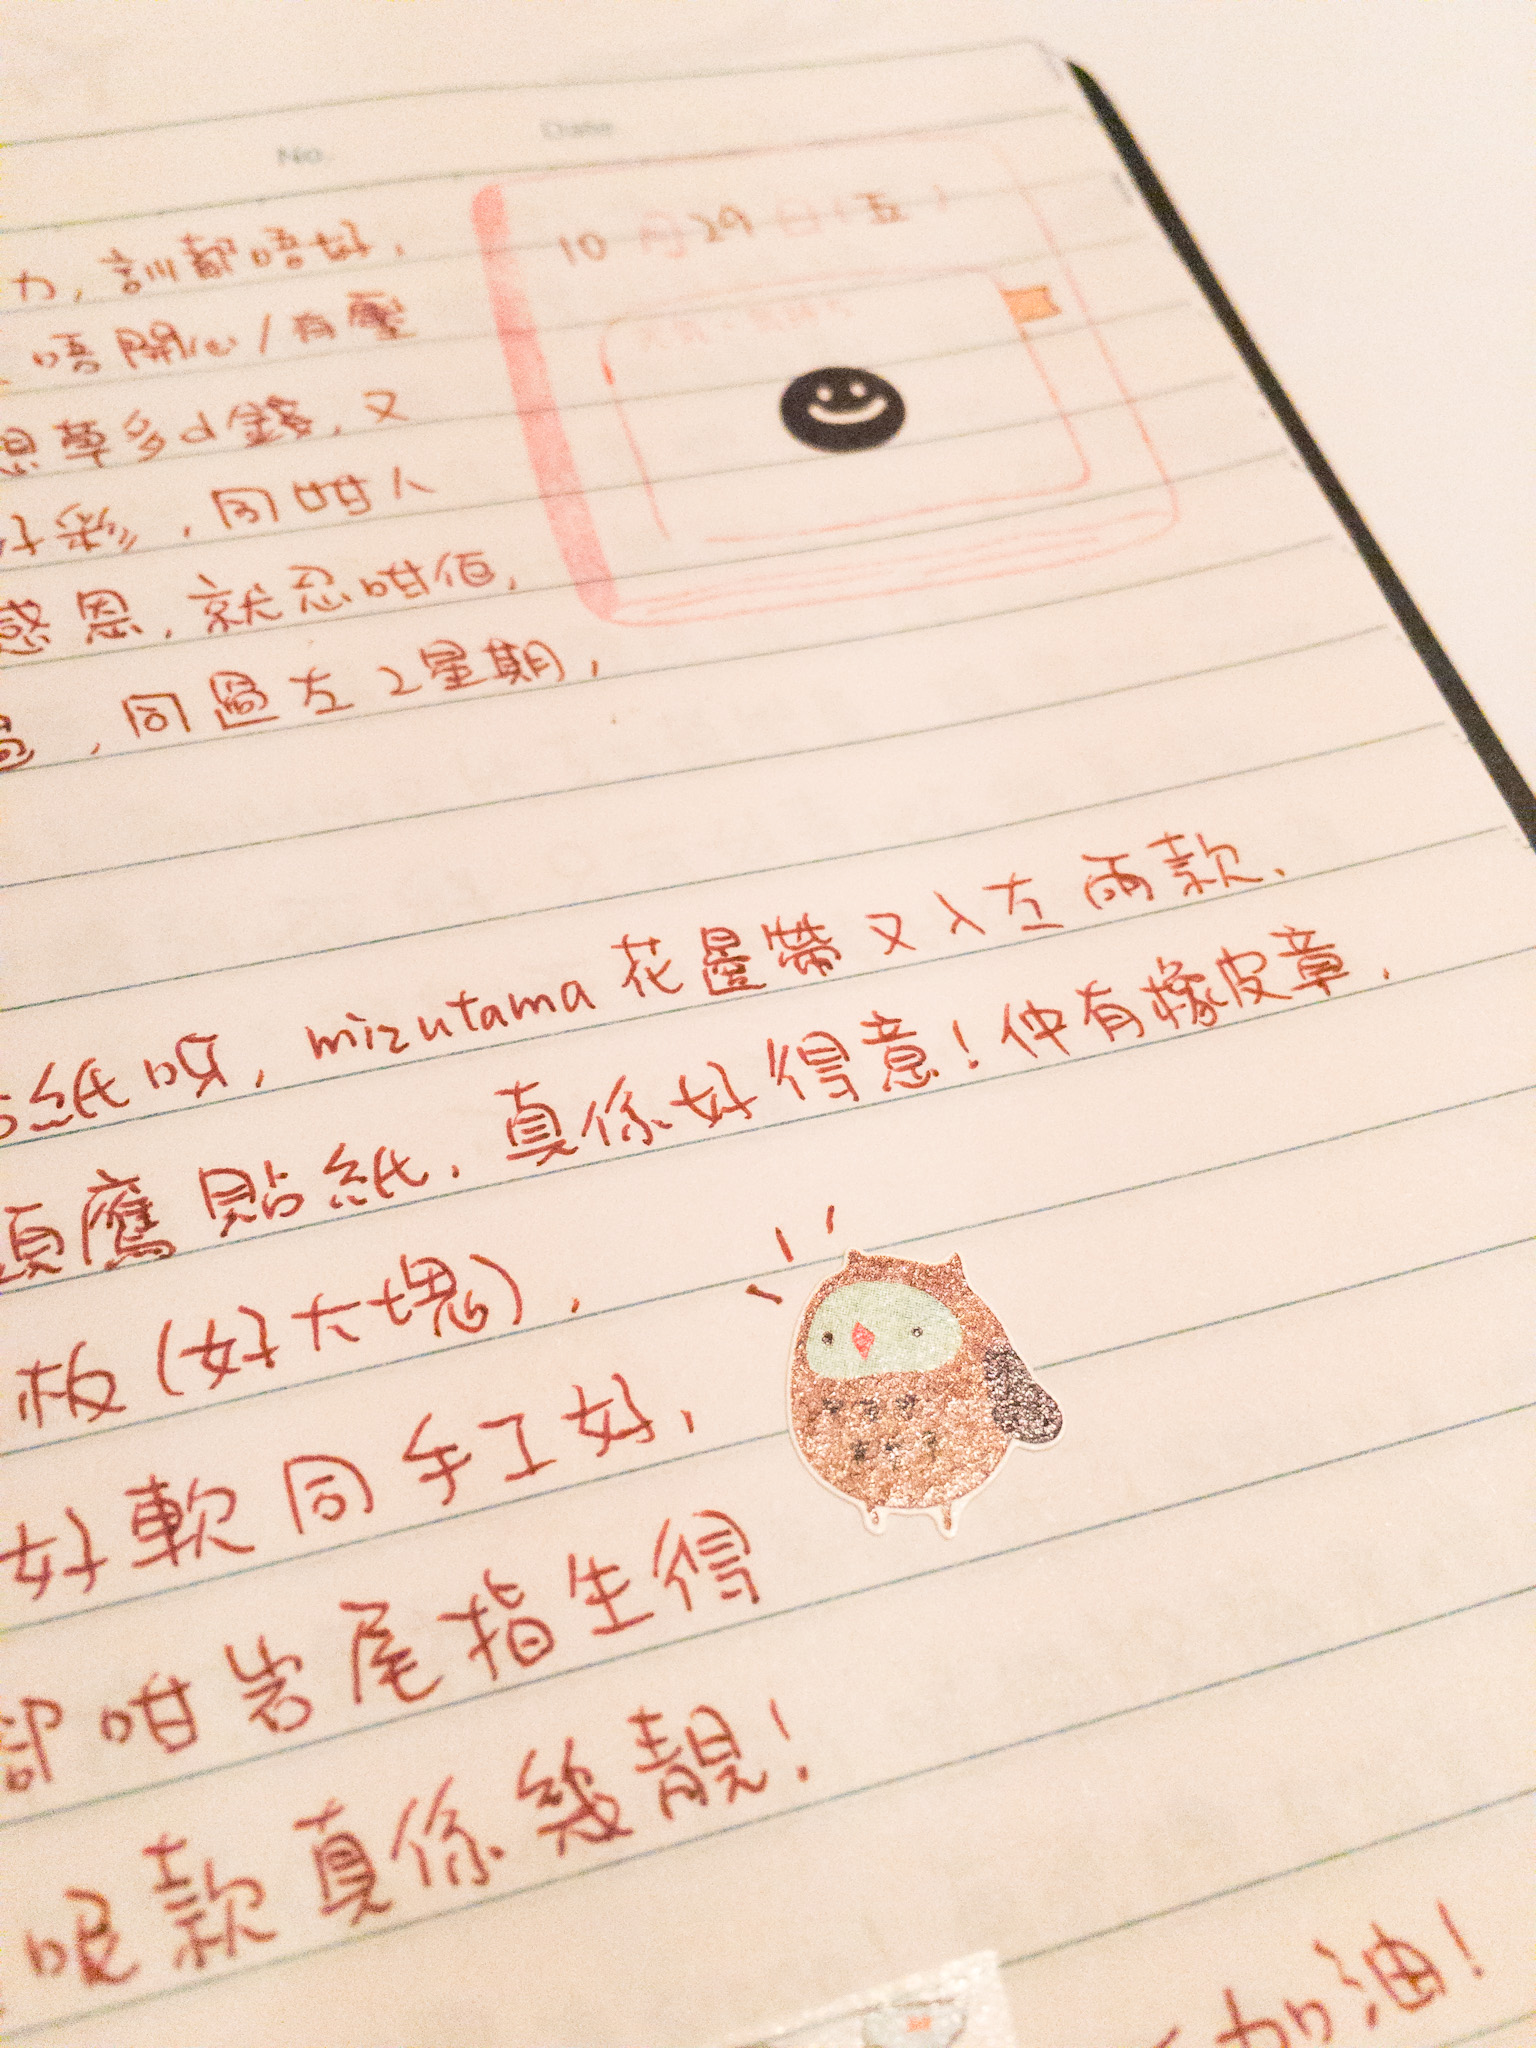 No.
Date
10 月 29 日 (五)
力, 訓都唔好,
唔開心/有壓
想草多d錢, 又
好彩, 同咁人
感恩, 就忍咁佰,
, 同過左2星期,
紙呀, mizutama 花邊帶又入左兩款.
頭鷹貼紙, 真係好得意! 仲有橡皮章,
板(好大塊),
好軟同手工好,
都咁岩尾指生得
呢款真係幾靚!
加油!